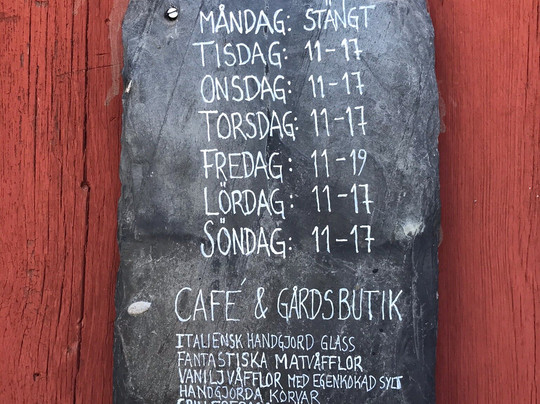 MÅNDAG: STÄNGT
TISDAG: 11-17
ONSDAG: 11-17
TORSDAG: 11-17
FREDAG: 11-19
LÖRDAG: 11-17
SÖNDAG: 11-17
CAFÉ & GÅRDSBUTIK
ITALIENSK HANDGJORD GLASS
FANTASTISKA MATVÅFFLOR
VANILJVÅFFLOR MED EGENKOKAD SYLT
HANDGJORDA KORVAR